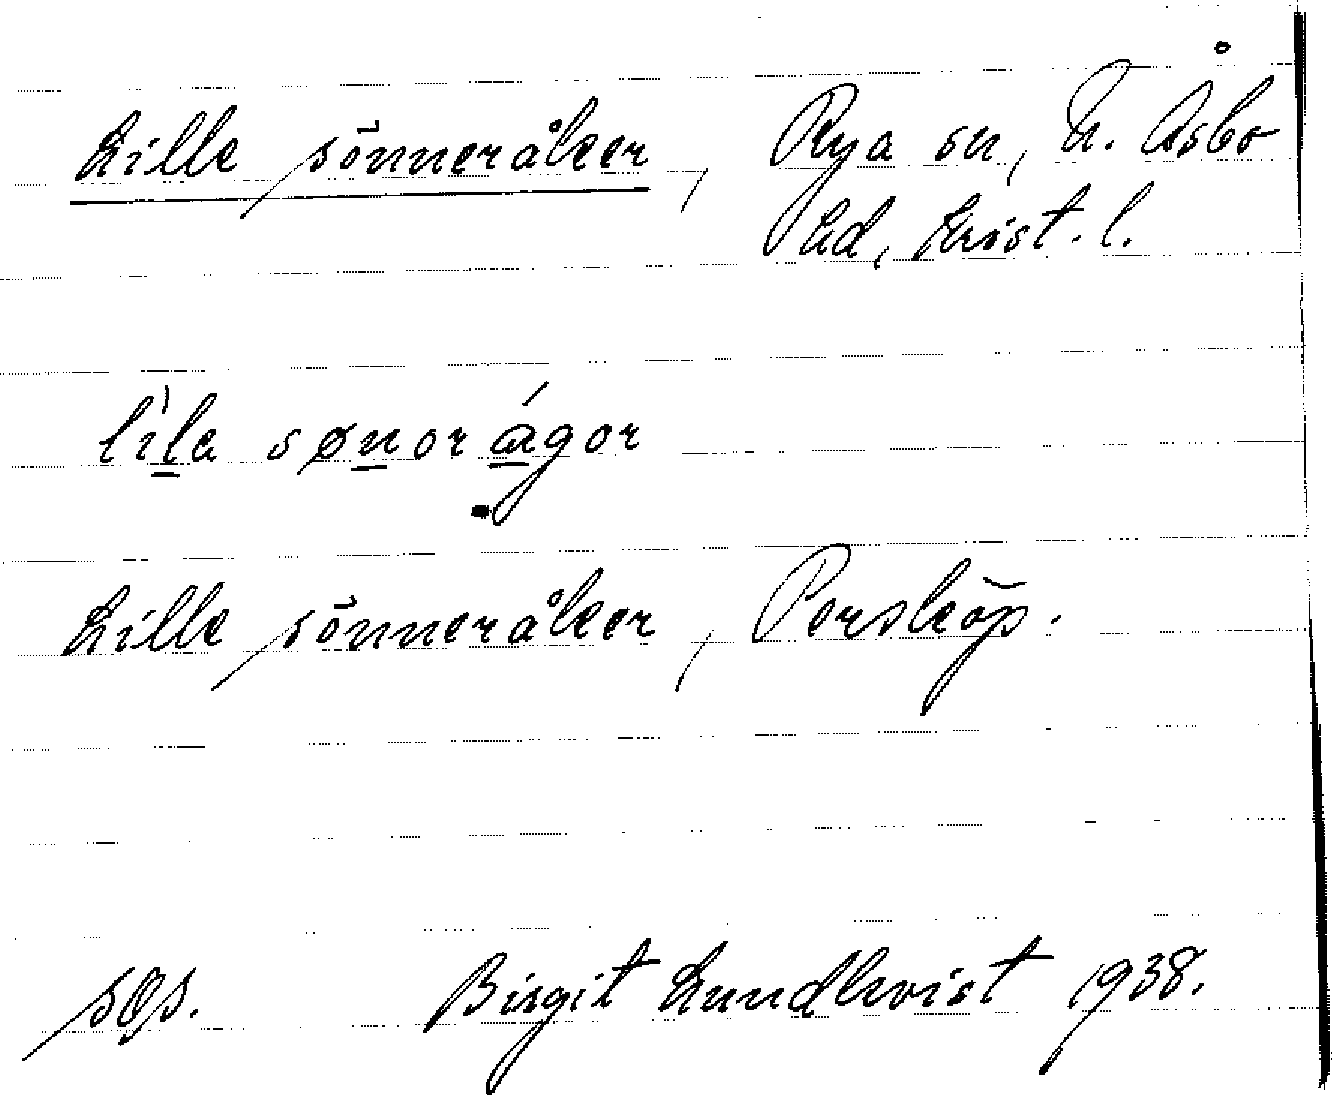 Lille sönneråker, Rya sn, N. Åsbo
hd, Krist. l.
lila sønorågor
Lille sönneråker, Perskö​p.
sgs. Birgit Lundkvist 1938.